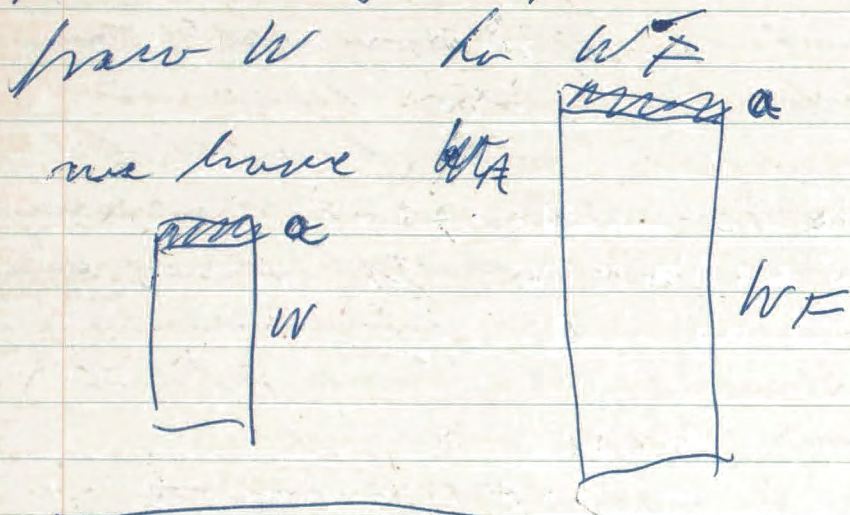 from W to WF
a
we have
a
W
WF